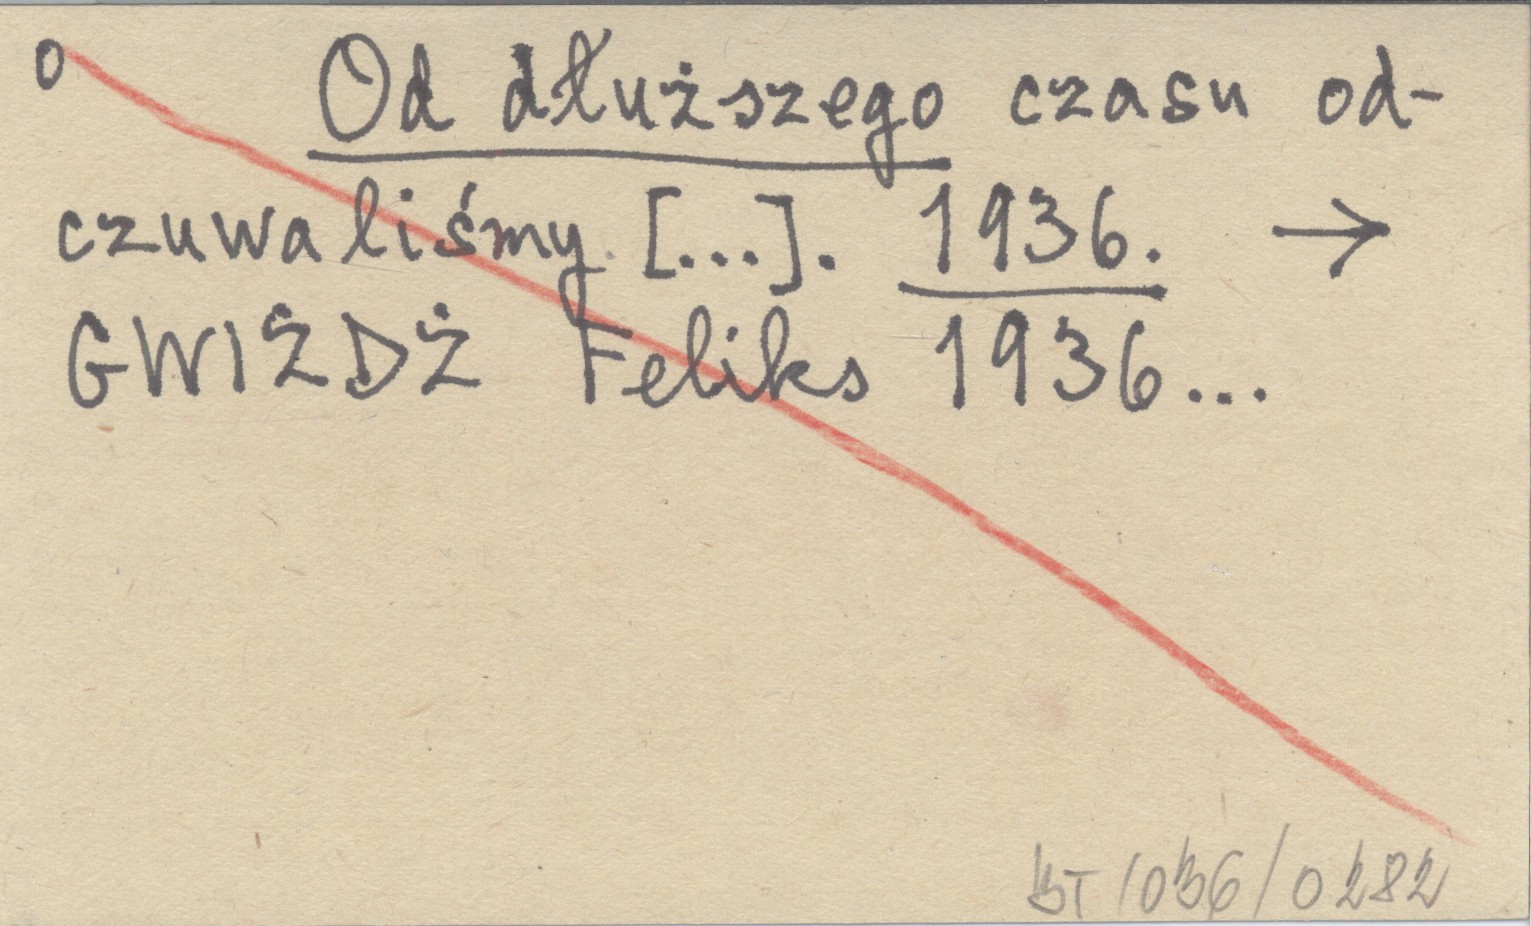 o Od dłuższego czasu od-
czuwaliśmy [...]. 1936. →
GWIŻDŻ Feliks 1936...
BT/036/0282